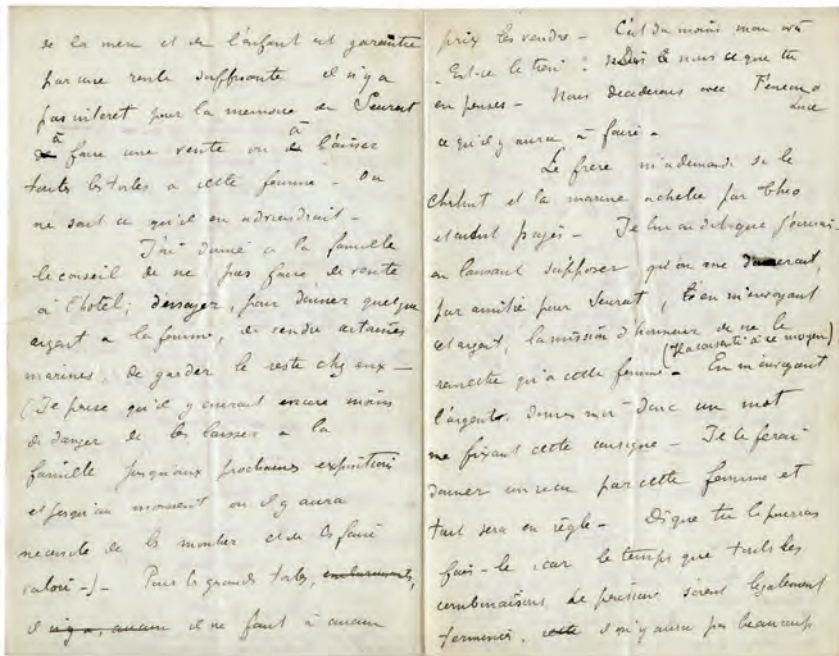 de la mere et de l'enfant est garantie
par une rente suffisante il n'y a
pas interet pour la memoire de Seurat
à faire une vente ou à laisser
toutes les toiles a cette femme - On
ne sait ce qu'il en adviendrait -
J'ai donné a la famille
le conseil de ne pas faire de vente
à l'hotel; d'essayer, pour donner quelque
argent a la femme, de vendre certaines
marines, de garder le reste chez eux -
(Je pense qu'il y aurait encore moins
de danger de les laisser a la
famille jusqu'aux prochaines expositions
et jusqu'au moment ou il y aura
necessité de les montrer et de les faire
valoir -) - Pour les grandes toiles,
il ne faut à aucun
prix les vendre - C'est du moins mon avis
Est-ce le tien : Dis nous ce que tu
en penses - Nous deciderons avec Feneon &
Luce
ce qu'il y aura à faire -
Le frere m'a demandé si le
Chahut et la marine achetée par
etaient payés - Je lui ai dit que j'ignorais
en laissant supposer qu'on me donnerait,
par amitié pour Seurat, en m'envoyant
cet argent, la mission d'honneur de ne le
(Il a consenti à ce moyen)
remettre qu'à cette femme - En m'envoyant
l'argent, donnes moi donc un mot
me fixant cette consigne - Je te ferai
donner un recu par cette femme et
tout sera en règle - Dsque tu le pourras
fais-le car le temps que toutes les
combinaisons de pension soient legalement
terminées, il n'y aura pas beaucoup